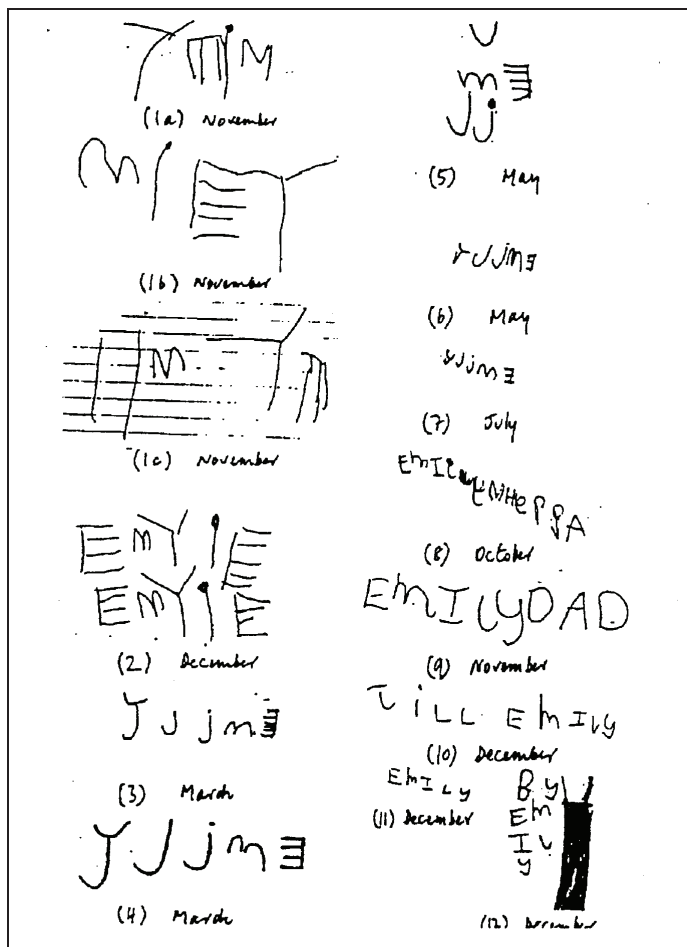 (1a) November
m i
(1b) November
m
(1c) November
E m Y i E
E m Y i E
(2) December
Y J j m
(3) March
Y J j m
(4) March
m
J j
(5) May
(6) May
(7) July
EmIL
(8) October
EmILyDAD
(9) November
iLL EmILy
(10) December
EmILy
(11) December
By
Em
IL
y
(12) December